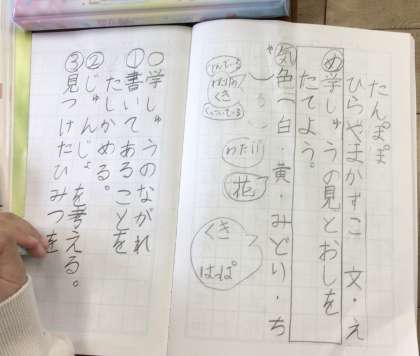 たんぽぽ
ひらやまかずこ 文・え
㋱学しゅうの見とおしを
たてよう。
気色(白・黄・みどり・ち
わた毛の
くき
わた毛
花
くき
はっぱ
○学しゅうのながれ
①書いてあることを
たしかめる。
②じゅんじょを考える。
③見つけたひみつを